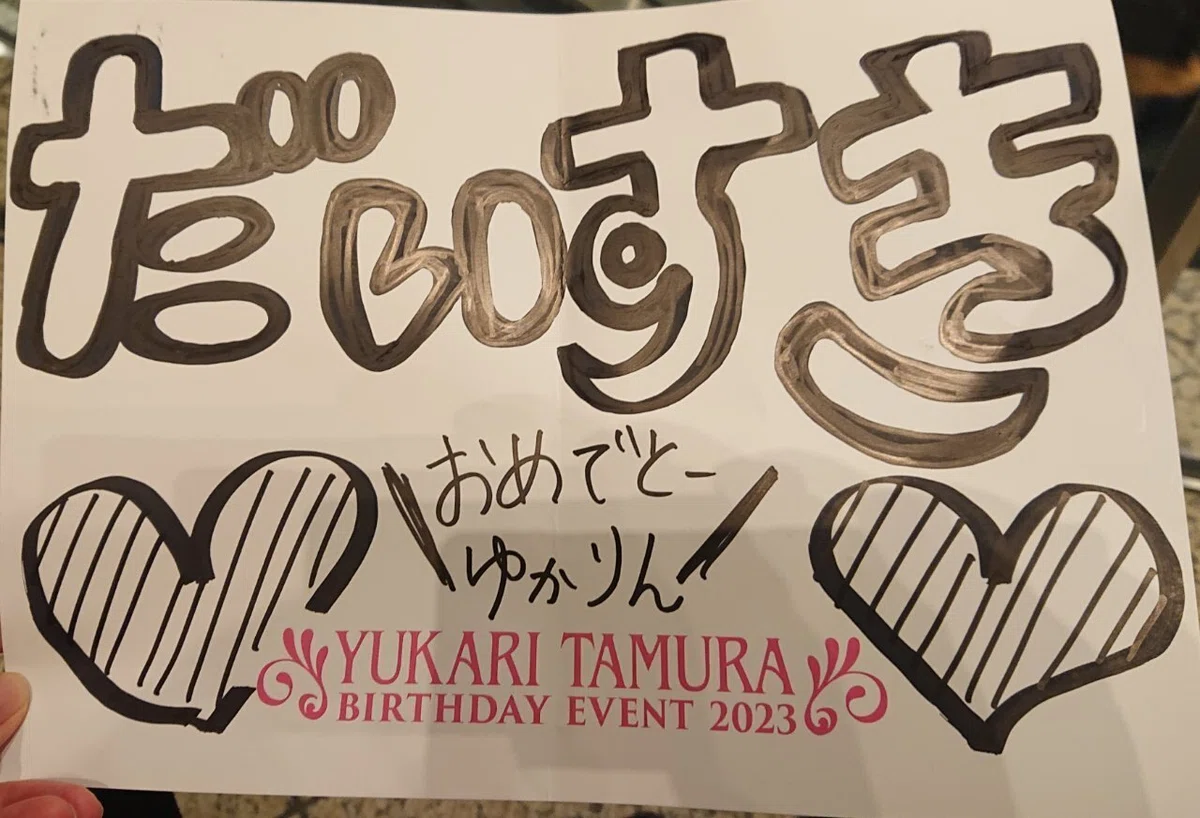 だいすき
おめでとー
ゆかりん
YUKARI TAMURA
BIRTHDAY EVENT 2023